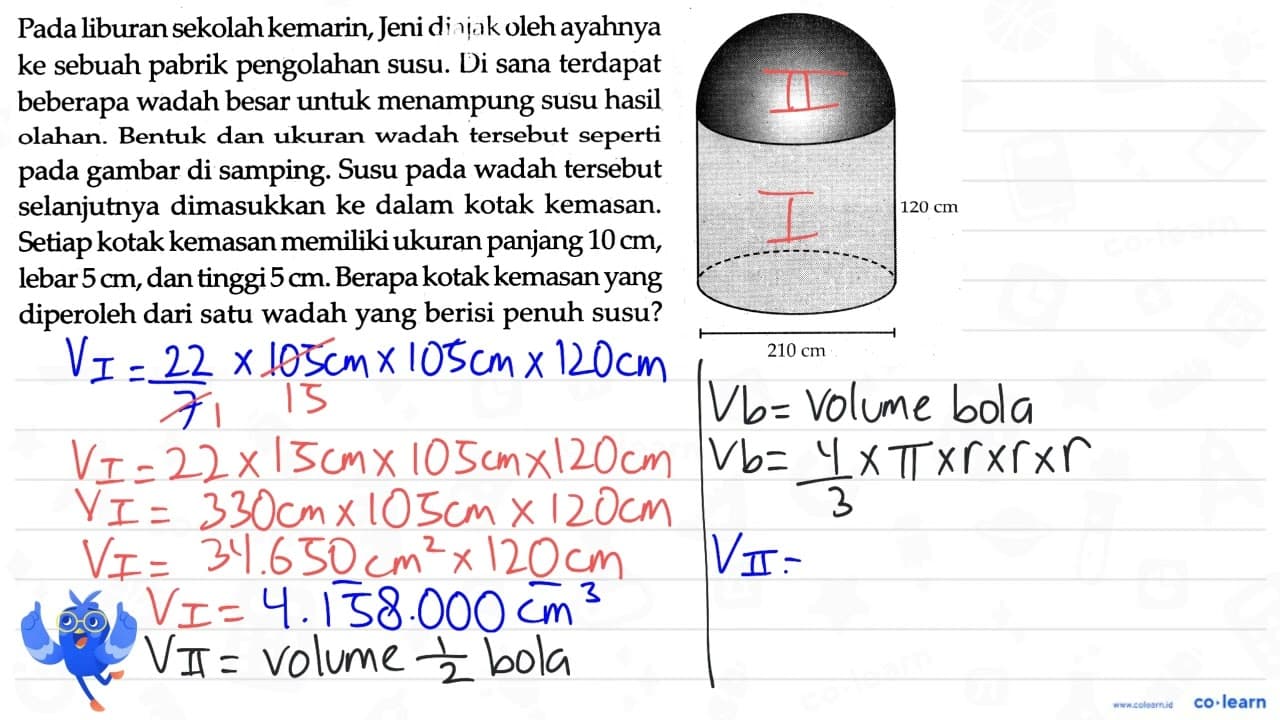 Pada liburan sekolah kemarin, Jeni diajak oleh ayahnya
ke sebuah pabrik pengolahan susu. Di sana terdapat
beberapa wadah besar untuk menampung susu hasil
olahan. Bentuk dan ukuran wadah tersebut seperti
pada gambar di samping. Susu pada wadah tersebut
selanjutnya dimasukkan ke dalam kotak kemasan.
Setiap kotak kemasan memiliki ukuran panjang 10 cm,
lebar 5 cm, dan tinggi 5 cm. Berapa kotak kemasan yang
diperoleh dari satu wadah yang berisi penuh susu?
II
I
120 cm
210 cm
V I = 22/7 × 105cm × 105cm × 120cm
1 15
V I = 22 × 15cm × 105cm × 120cm
V I = 330cm × 105cm × 120cm
V I = 34.650 cm² × 120cm
V I = 4.158.000 cm³
V II = volume 1/2 bola
Vb = volume bola
Vb = 4/3 × π × r × r × r
V II =
www.colearn.id
co·learn